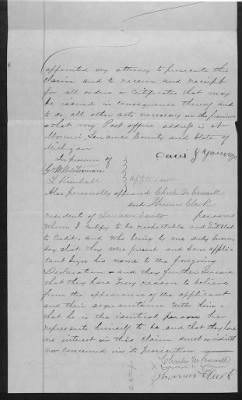 appointed my attorney to prosecute this
claim and to receive and receipt
for all orders or Certificates that may
be issued in consequence thereof and
to do all other acts necessary in the premises
and that my Post office address is at
Morenci Lenawee County and State of
Michigan
In presence of
applicant
Also personally appeared Charles
and Clark
residents of Lenawee County persons
whom I certify to be respectable and entitled
to credit, and who being by me duly sworn
say that they were present and saw appli-
cant sign his name to the foregoing
Declaration and they further swear
that they have every reason to believe
from the appearance of the applicant
and their acquaintance with him,
that he is the identical person he
represents himself to be and that they have
no interest in this claim
nor concerned in its prosecution
Charles
Clark